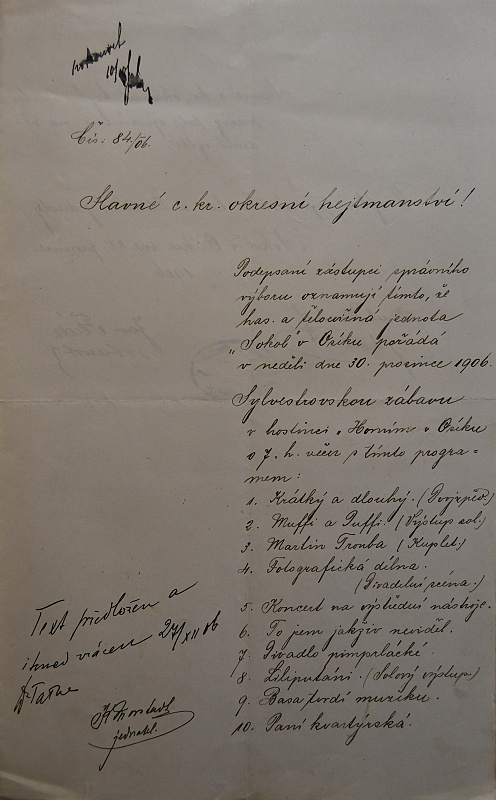 Čís: 84/06.
Slavné c. kr. okresní hejtmanství!
Podepsaní zástupci správního
výboru oznamují tímto, že
has. a tělocvičná jednota
"Sokol" v Osíku pořádá
v neděli dne 30. prosince 1906.
Sylvestrovskou zábavu
v hostinci "Horním" v Osíku
o 7. h. večer s tímto progra=
mem:
1. Krátký a dlouhý. (Dvojzpěv.)
2. Muffi a Puffi. (Výstup sol.)
3. Martin Trouba (Kuplet.)
4. Fotografická dílna.
(Divadelní scéna.)
5. Koncert na výstřední nástroje.
6. To jsem jakživ neviděl.
7. Divadlo pimprlacké
8. Liliputani. (Solový výstup.)
9. Basa tvrdí muziku.
10. Paní kvartýrská.
Text předložen a
ihned vrácen 27/XII 06
jednatel.